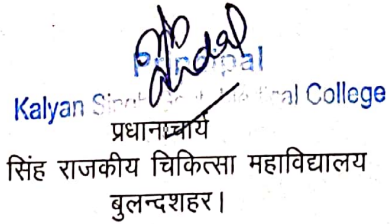 Principal
Kalyan Singh Medical College
प्रधानाचार्य
सिंह राजकीय चिकित्सा महाविद्यालय
बुलन्दशहर।